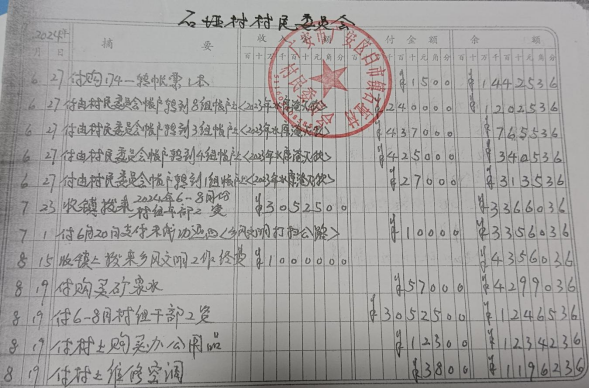 石垭村村民委员会
2024年 摘要 收 额 付 金额 余额
月 日
6 27 付购 174一转帐票1本 ¥1500 ¥1442536
6 27 付由村民委员会帐户转到8组帐户上<2023年水库 > ¥240000 ¥1202536
6 27 付由村民委员会帐户转到3组帐户上<2023年水库 > ¥437000 ¥765536
6 27 付由村民委员会帐户转到4组帐户上<2023年水库 > ¥425000 ¥340536
6 27 付由村民委员会帐户转到1组帐户上<2023年水库 > ¥27000 ¥313536
7 23 收镇拨来2024年6-8月份村组干部工资 ¥3052500 ¥3366036
7 1 付6月20日支付 <乡风文明打扫公路> ¥10000 ¥3356036
8 15 收镇上拨来乡风文明工作经费 ¥1000000 ¥4356036
8 19 付购买矿泉水 ¥57000 ¥4299036
8 19 付6-8月村组干部工资 ¥3052500 ¥1246536
8 19 付村上购买办公用品 ¥12300 ¥1234236
8 19 付村上维修空调 ¥38000 ¥1196236
广安市广安区白市镇石垭村
村民委员会